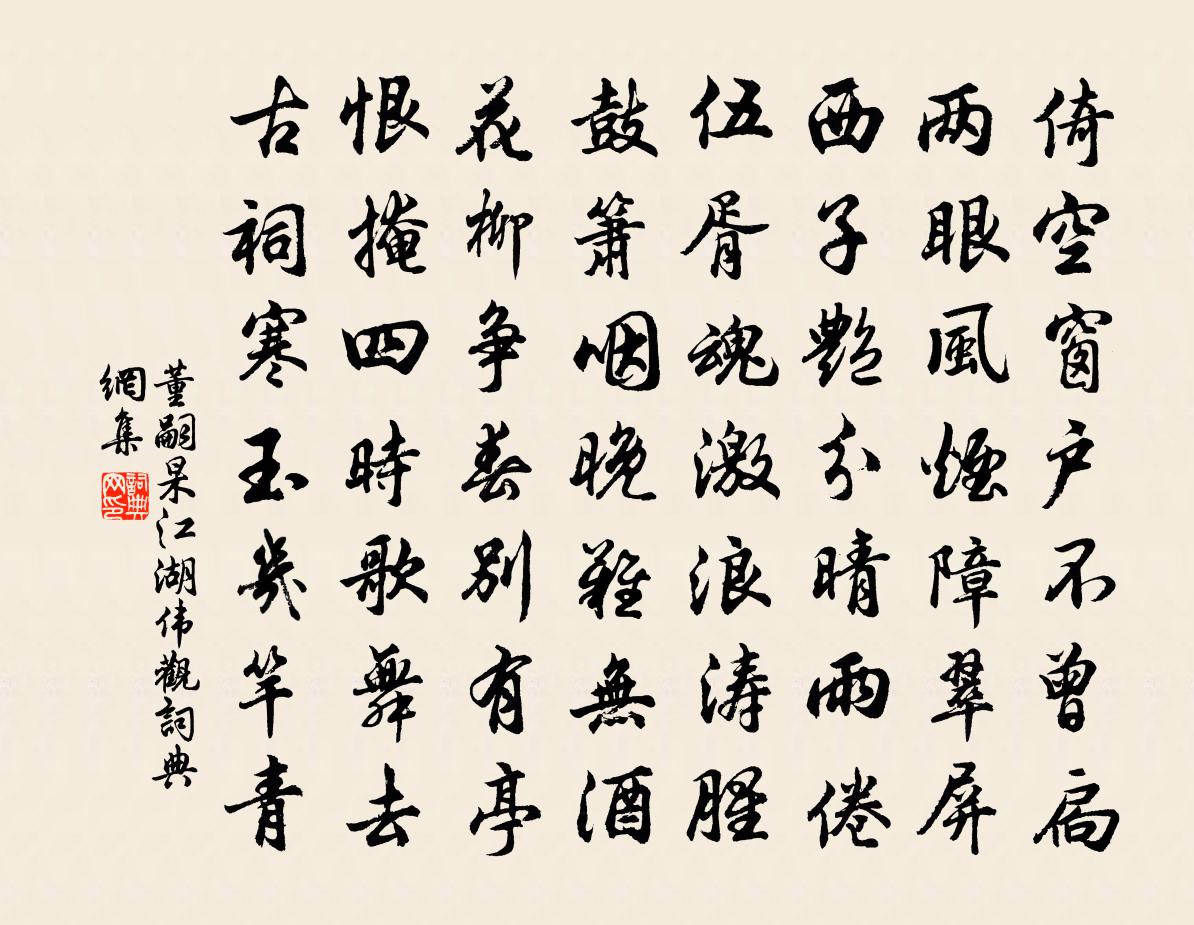 倚空窗户不曾扃
两眼風煙障翠屏
西子艷分晴雨倦
伍胥魂激浪涛腥
鼓簫咽晚難無酒
花柳争春别有亭
恨掩四時歌舞去
古祠寒玉幾竿青
董嗣杲江湖伟觀詞典
網集
詞典
网印